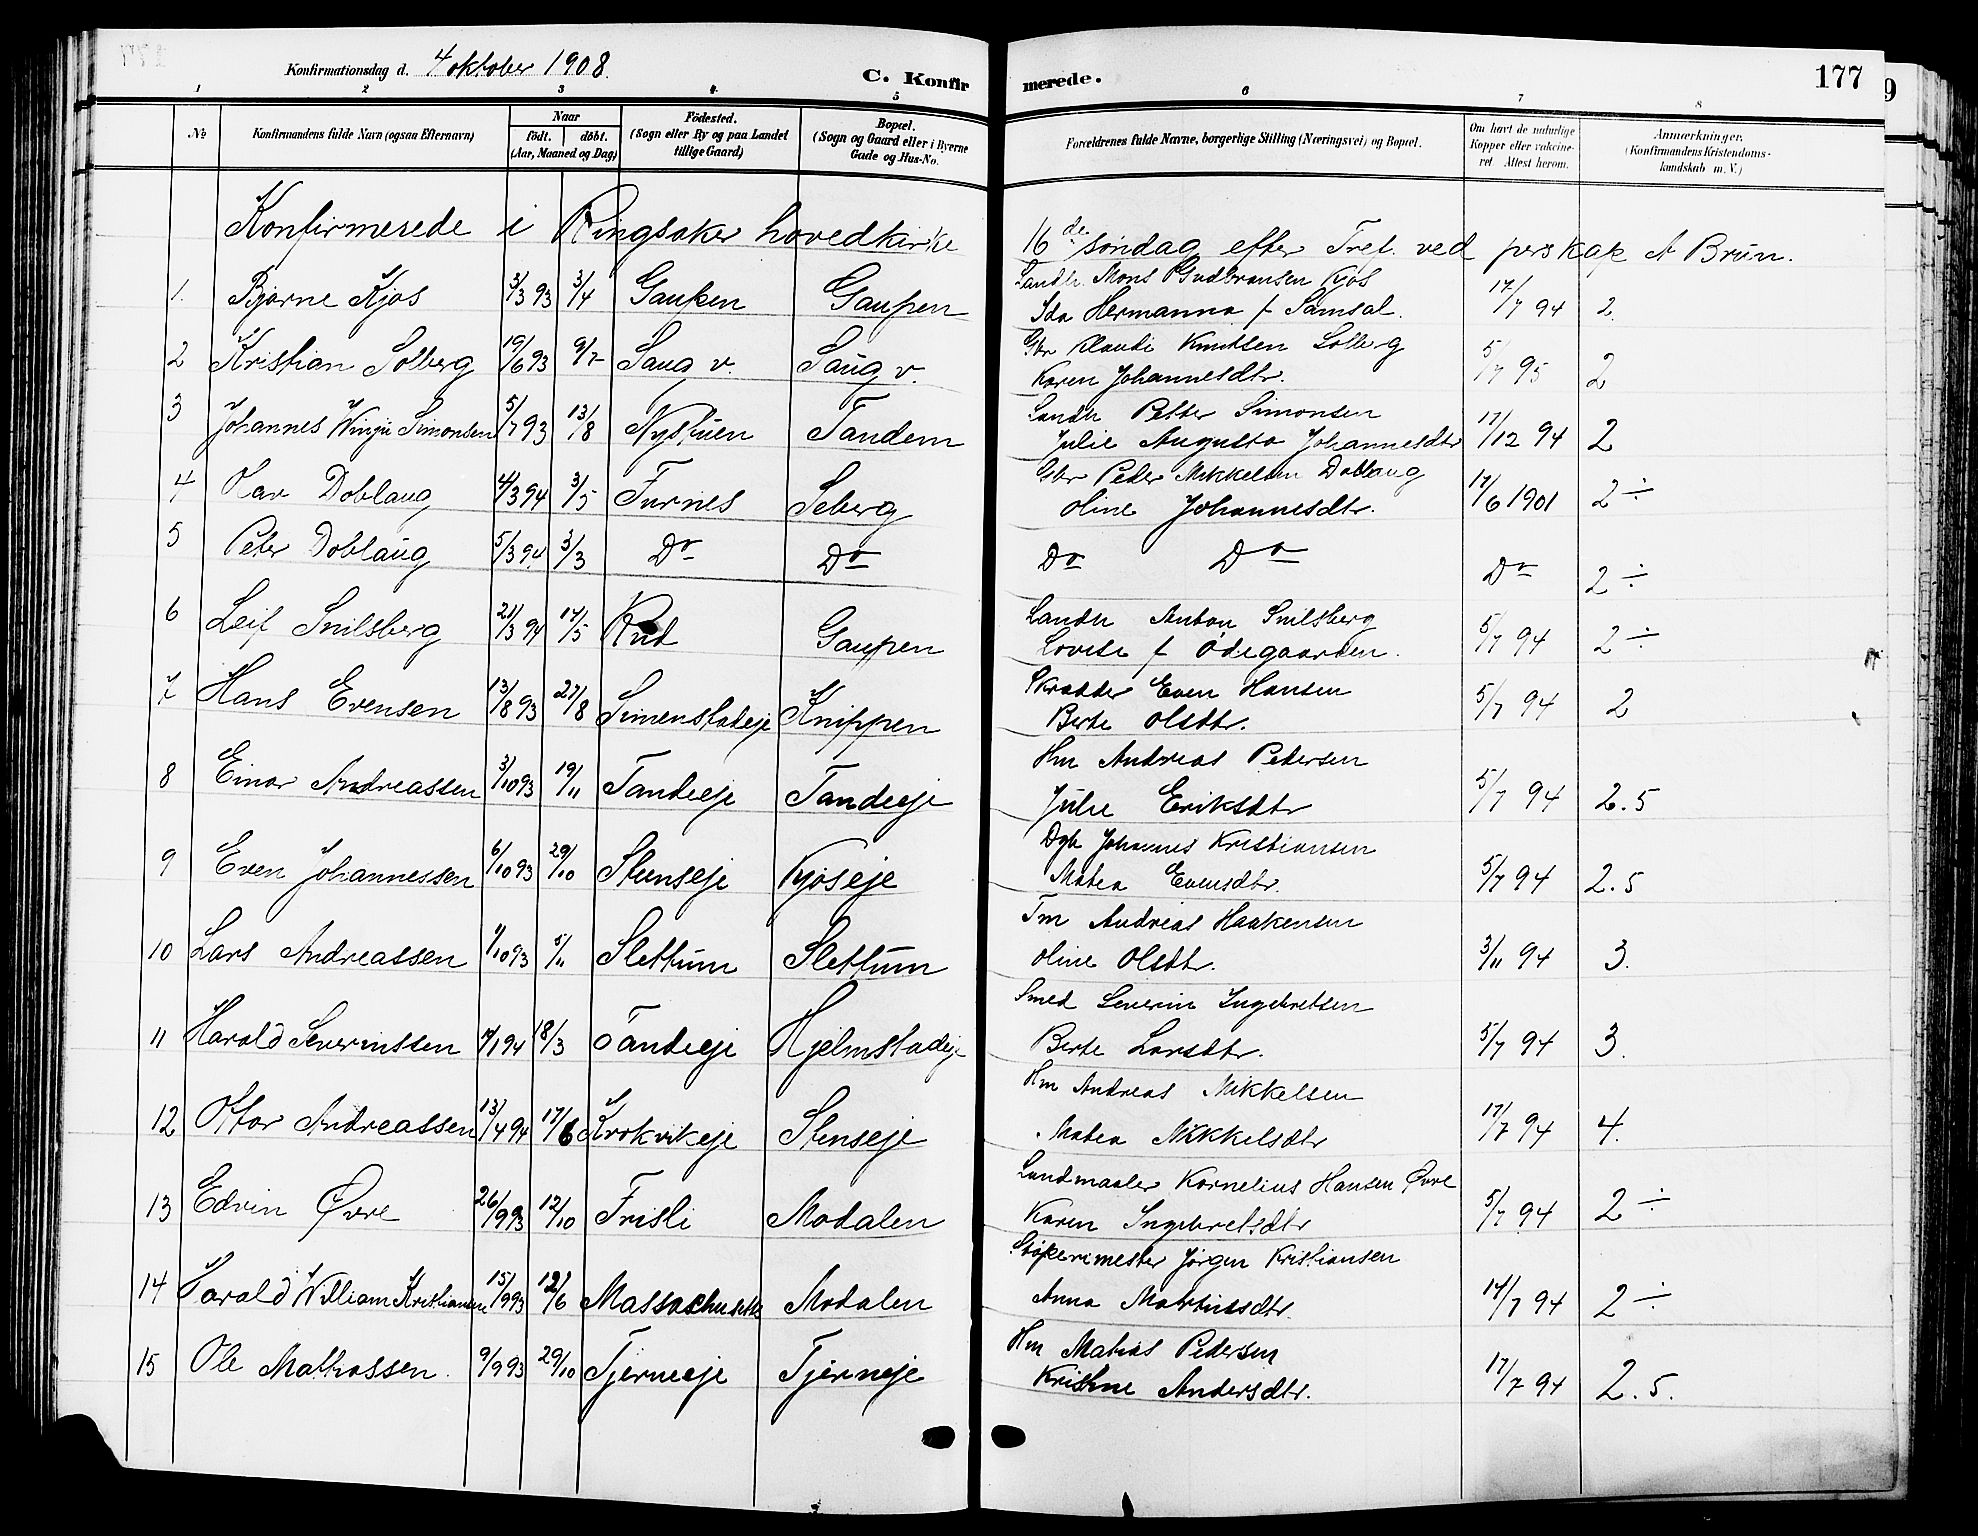 Konfirmationsdag d. 4 oktober 1908.
C. Konfirmerede.
177
9
1 2 3 4 5 6 7 8
No
Konfirmandens fulde Navn (ogsaa Efternavn)
Naar
födt. döbt.
(Aar, Maaned og Dag)
Födested.
(Sogn eller By og paa Landet
tillige Gaard)
Bopæl.
(Sogn og Gaard eller i Byerne
Gade og Hus-No.
Forældrenes fulde Navne, borgerlige Stilling (Næringsvei) og Bopæl.
Om havt de naturlige
Kopper eller vakcine-
ret. Attest herom.
Anmærkninger.
(Konfirmandens Kristendoms-
kundskab m. V.)
Konfirmerede i Ringsaker hovedkirke 16de søndag efter Tref. ved perskap A Brun.
1. Bjarne Kjos 3/3 93 3/4 Gaupen Gaupen Landh. Mons Gudbransen Kjos
Ida Hermanna f Samsal. 17/7 94 2.
2 Kristian Solberg 19/6 93 9/7 Saug v. Saug v. Gbr Klaudi Knutsen Solberg
Karen Johannesdtr. 5/7 95 2
3 Johannes Winju Simonsen 5/7 93 13/8 Nystuen Tandem Landh Petter Simonsen
Julie Augusta Johannesdtr 17/12 94 2
4 Kar Doblaug 4/3 94 3/5 Furnes Seberg Gbr Peder Mikkelsen Doblaug
Oline Johannesdtr. 17/6 1901 2 ÷
5 Peter Doblaug 5/3 94 3/3 Do Do Do Do Do 2 ÷
6 Leif Snilsberg 21/3 94 14/5 Rud Gaupen Landh Anton Snilsberg
Lovise f Ødegaarden. 5/7 94 2 ÷
7 Hans Evensen 13/8 93 27/8 Simenstadeje Knippen Skrædder Even Hansen
Berte Olsdtr. 5/7 94 2
8 Einar Andreassen 3/10 93 19/11 Tandeeje Tandeeje Hm Andreas Pedersen
Julie Eriksdtr 5/7 94 2.5
9 Even Johannessen 6/10 93 29/10 Stenseje Kjoseje Dgb Johannes Kristiansen
Matea Evensdtr. 5/7 94 2.5
10 Lars Andreassen 1/10 93 5/11 Slettum Slettum Tm Andreas Haakensen
Oline Olsdtr. 3/11 94 3.
11 Harald Severinssen 4/1 94 18/3 Tandeeje Hjelmstadeje Smed Severin Ingebretsen
Berte Larsdtr. 5/7 94 3.
12 Ottar Andreassen 13/4 94 17/6 Krokvikeje Stenseje Hm Andreas Mikkelsen
Matea Mikkelsdtr 17/7 94 4.
13 Edvin Øvre 26/9 93 12/10 Frisli Modalen Landmaaler Kornelius Hansen Øvre
Karen Ingebretsdtr 5/7 94 2 ÷
14 Harald William Kristiansen 15/9 93 12/6 Massachusetts Modalen Støperimester Jørgen Kristiansen
Anna Martinsdtr. 14/7 94 2 ÷
15 Ole Mathiassen. 9/9 93 29/10 Tjerneeje Tjerneje Hm Matias Pedersen
Kristine Andersdtr. 17/7 94 2.5.